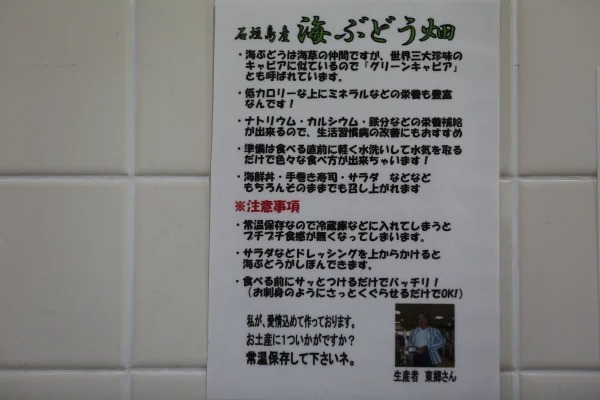 石垣島産 海ぶどう畑
・海ぶどうは海草の仲間ですが、世界三大珍味の
キャビアに似ているので「グリーンキャビア」
とも呼ばれています。
・低カロリーな上にミネラルなどの栄養も豊富
なんです！
・ナトリウム・カルシウム・鉄分などの栄養補給
が出来るので、生活習慣病の改善にもおすすめ
・準備は食べる直前に軽く水洗いして水気を取る
だけで色々な食べ方が出来ちゃいます！
・海鮮丼・手巻き寿司・サラダ などなど
もちろんそのままでも召し上がれます
※注意事項
・常温保存なので冷蔵庫などに入れてしまうと
プチプチ食感が無くなってしまいます。
・サラダなどドレッシングを上からかけると
海ぶどうがしぼんできます。
・食べる前にサッとつけるだけでバッチリ！
（お刺身のようにさっとくぐらせるだけでOK!）
私が、愛情込めて作っております。
お土産に1ついかがですか？
常温保存して下さいネ。
生産者 東郷さん